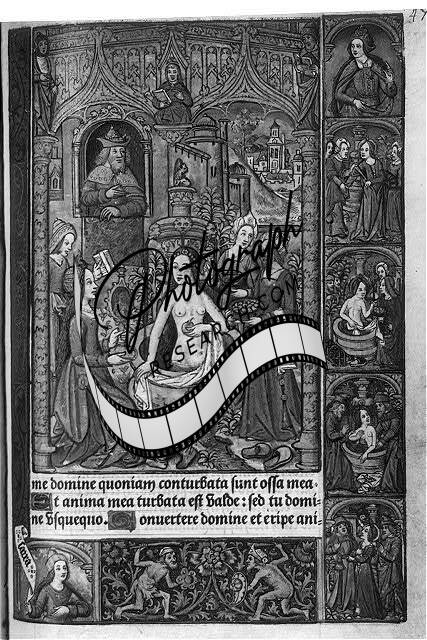 47
Photograph
RESEARCH.COM
me domine quoniam conturbata sunt ossa mea.
Et anima mea turbata est valde: sed tu domi-
ne vsquequo. Conuertere domine et eripe ani-